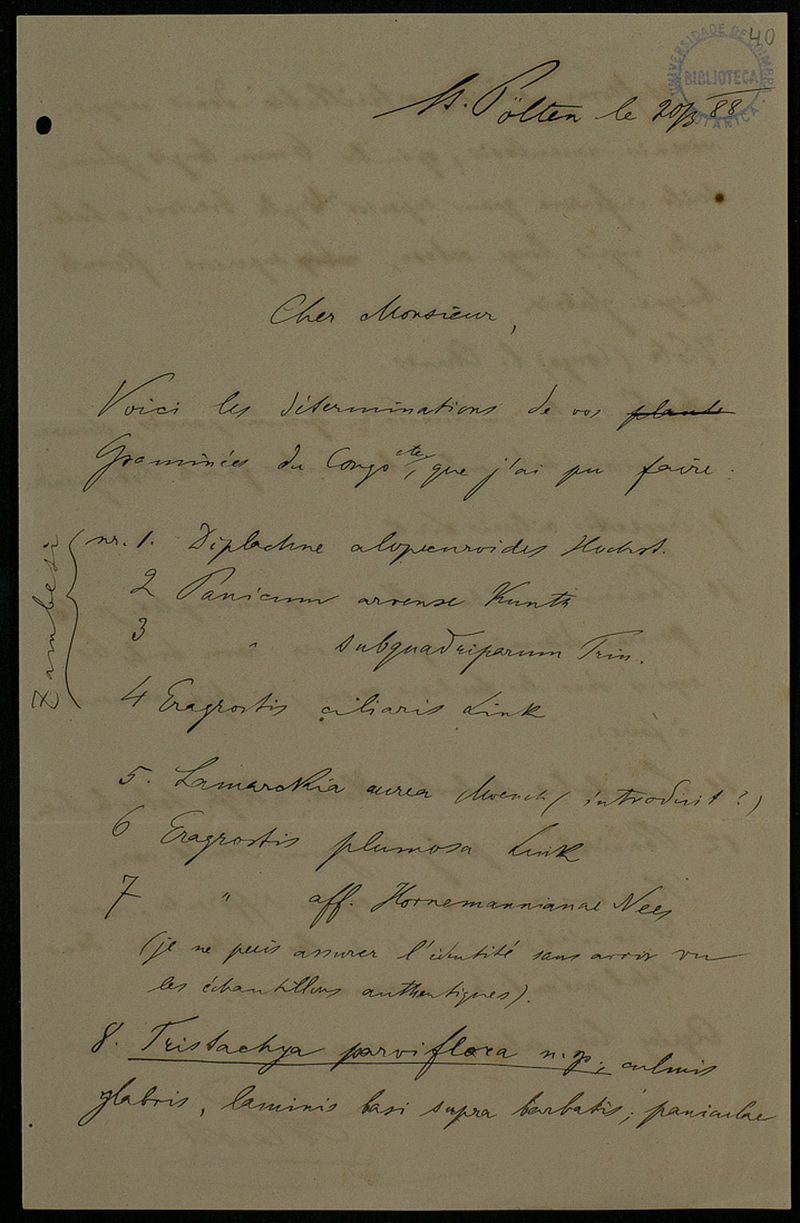 40
UNIVERSIDADE DE COIMBRA
BIBLIOTECA
BOTANICA
St. Pölten le 20/3 88
Cher Monsieur,
Voici les déterminations de vos plante
Graminées du Congo etc, que j'ai pu faire:
Zambesi
nr. 1. Diplachne alopecuroides Hochst.
2 Panicum arvense Kunth
3 " subquadriparum Trin.
4 Eragrostis ciliaris Link
5. Lamarckia aurea Moench (introduit?)
6 Eragrostis plumosa Link
7 " aff. Hornemannianae Nees
(je ne puis assurer l'identité sans avoir vu
les échantillons authentiques).
8. Tristachya parviflora n. sp., culmis
glabris, laminis basi supra barbatis; paniculae